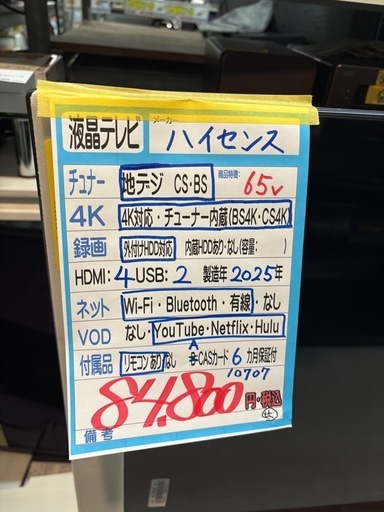 液晶テレビ メーカー ハイセンス
チュナー 地デジ CS・BS 商品特徴: 65v
4K 4K対応・チューナー内蔵(BS4K・CS4K)
録画 外付けHDD対応 内蔵HDDあり・なし(容量: )
HDMI: 4 USB: 2 製造年 2025年
ネット Wi-Fi・Bluetooth・有線・なし
VOD なし・YouTube・Netflix・Hulu
付属品 リモコンあり なし B-CASカード 6カ月保証付
10707
84,800円・税込
備考